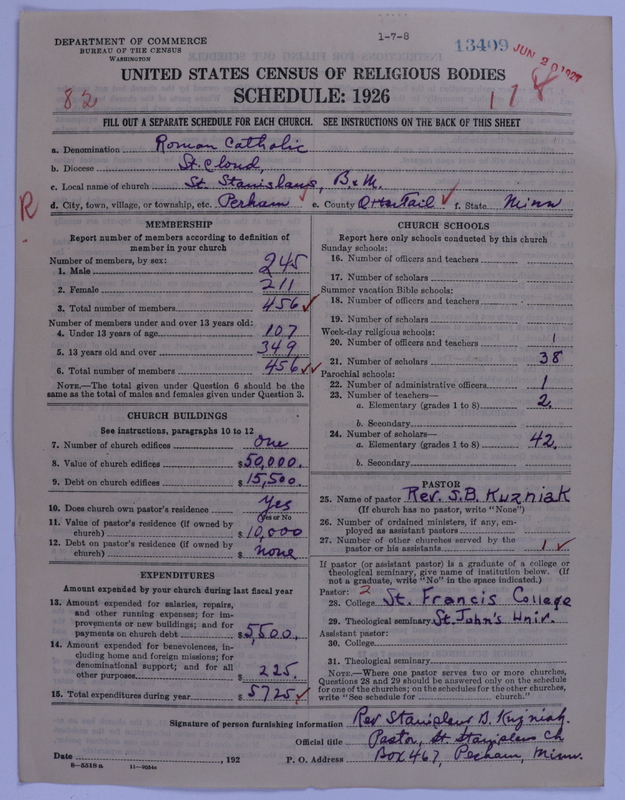 DEPARTMENT OF COMMERCE
BUREAU OF THE CENSUS
WASHINGTON
1-7-8
13409
JUN 20 1927
UNITED STATES CENSUS OF RELIGIOUS BODIES
SCHEDULE: 1926
82
118
FILL OUT A SEPARATE SCHEDULE FOR EACH CHURCH. SEE INSTRUCTIONS ON THE BACK OF THIS SHEET
a. Denomination Roman Catholic
b. Diocese St. Cloud,
c. Local name of church St. Stanislaus, B & M.
d. City, town, village, or township, etc. Perham e. County Otter Tail f. State Minn
R
MEMBERSHIP
Report number of members according to definition of
member in your church
Number of members, by sex:
1. Male 245
2. Female 211
3. Total number of members 456
Number of members under and over 13 years old:
4. Under 13 years of age 107
5. 13 years old and over 349
6. Total number of members 456
NOTE.—The total given under Question 6 should be the
same as the total of males and females given under Question 3.
CHURCH BUILDINGS
See instructions, paragraphs 10 to 12
7. Number of church edifices One
8. Value of church edifices $50,000.
9. Debt on church edifices $15,500.
10. Does church own pastor's residence? Yes
(Yes or No
11. Value of pastor's residence (if owned by
church) $10,000
12. Debt on pastor's residence (if owned by
church) $ none
EXPENDITURES
Amount expended by your church during last fiscal year
13. Amount expended for salaries, repairs,
and other running expenses; for im-
provements or new buildings; and for
payments on church debt $5,500.
14. Amount expended for benevolences, in-
cluding home and foreign missions; for
denominational support; and for all
other purposes $ 225.
15. Total expenditures during year $5725.
CHURCH SCHOOLS
Report here only schools conducted by this church
Sunday schools:
16. Number of officers and teachers
17. Number of scholars
Summer vacation Bible schools:
18. Number of officers and teachers
19. Number of scholars
Week-day religious schools:
20. Number of officers and teachers 1
21. Number of scholars 38
Parochial schools:
22. Number of administrative officers 1
23. Number of teachers—
a. Elementary (grades 1 to 8) 2.
b. Secondary
24. Number of scholars—
a. Elementary (grades 1 to 8) 42.
b. Secondary
PASTOR
25. Name of pastor Rev. S.B. Kuzniak
(If church has no pastor, write "None")
26. Number of ordained ministers, if any, em-
ployed as assistant pastors
27. Number of other churches served by the
pastor or his assistants 1
If pastor (or assistant pastor) is a graduate of a college or
theological seminary, give name of institution below. (If
not a graduate, write "No" in the space indicated.)
Pastor: 2
28. College St. Francis College
29. Theological seminary St. John's Univ.
Assistant pastor:
30. College
31. Theological seminary
NOTE.—Where one pastor serves two or more churches,
Questions 28 and 29 should be answered only on the schedule
for one of the churches; on the schedules for the other churches,
write "See schedule for church."
Signature of person furnishing information Rev Stanislaus B. Kuzniak.
Official title Pastor, St. Stanislaus Ch
Date , 192 P. O. Address Box 467, Perham, Minn.
8—5518a 11—9034a